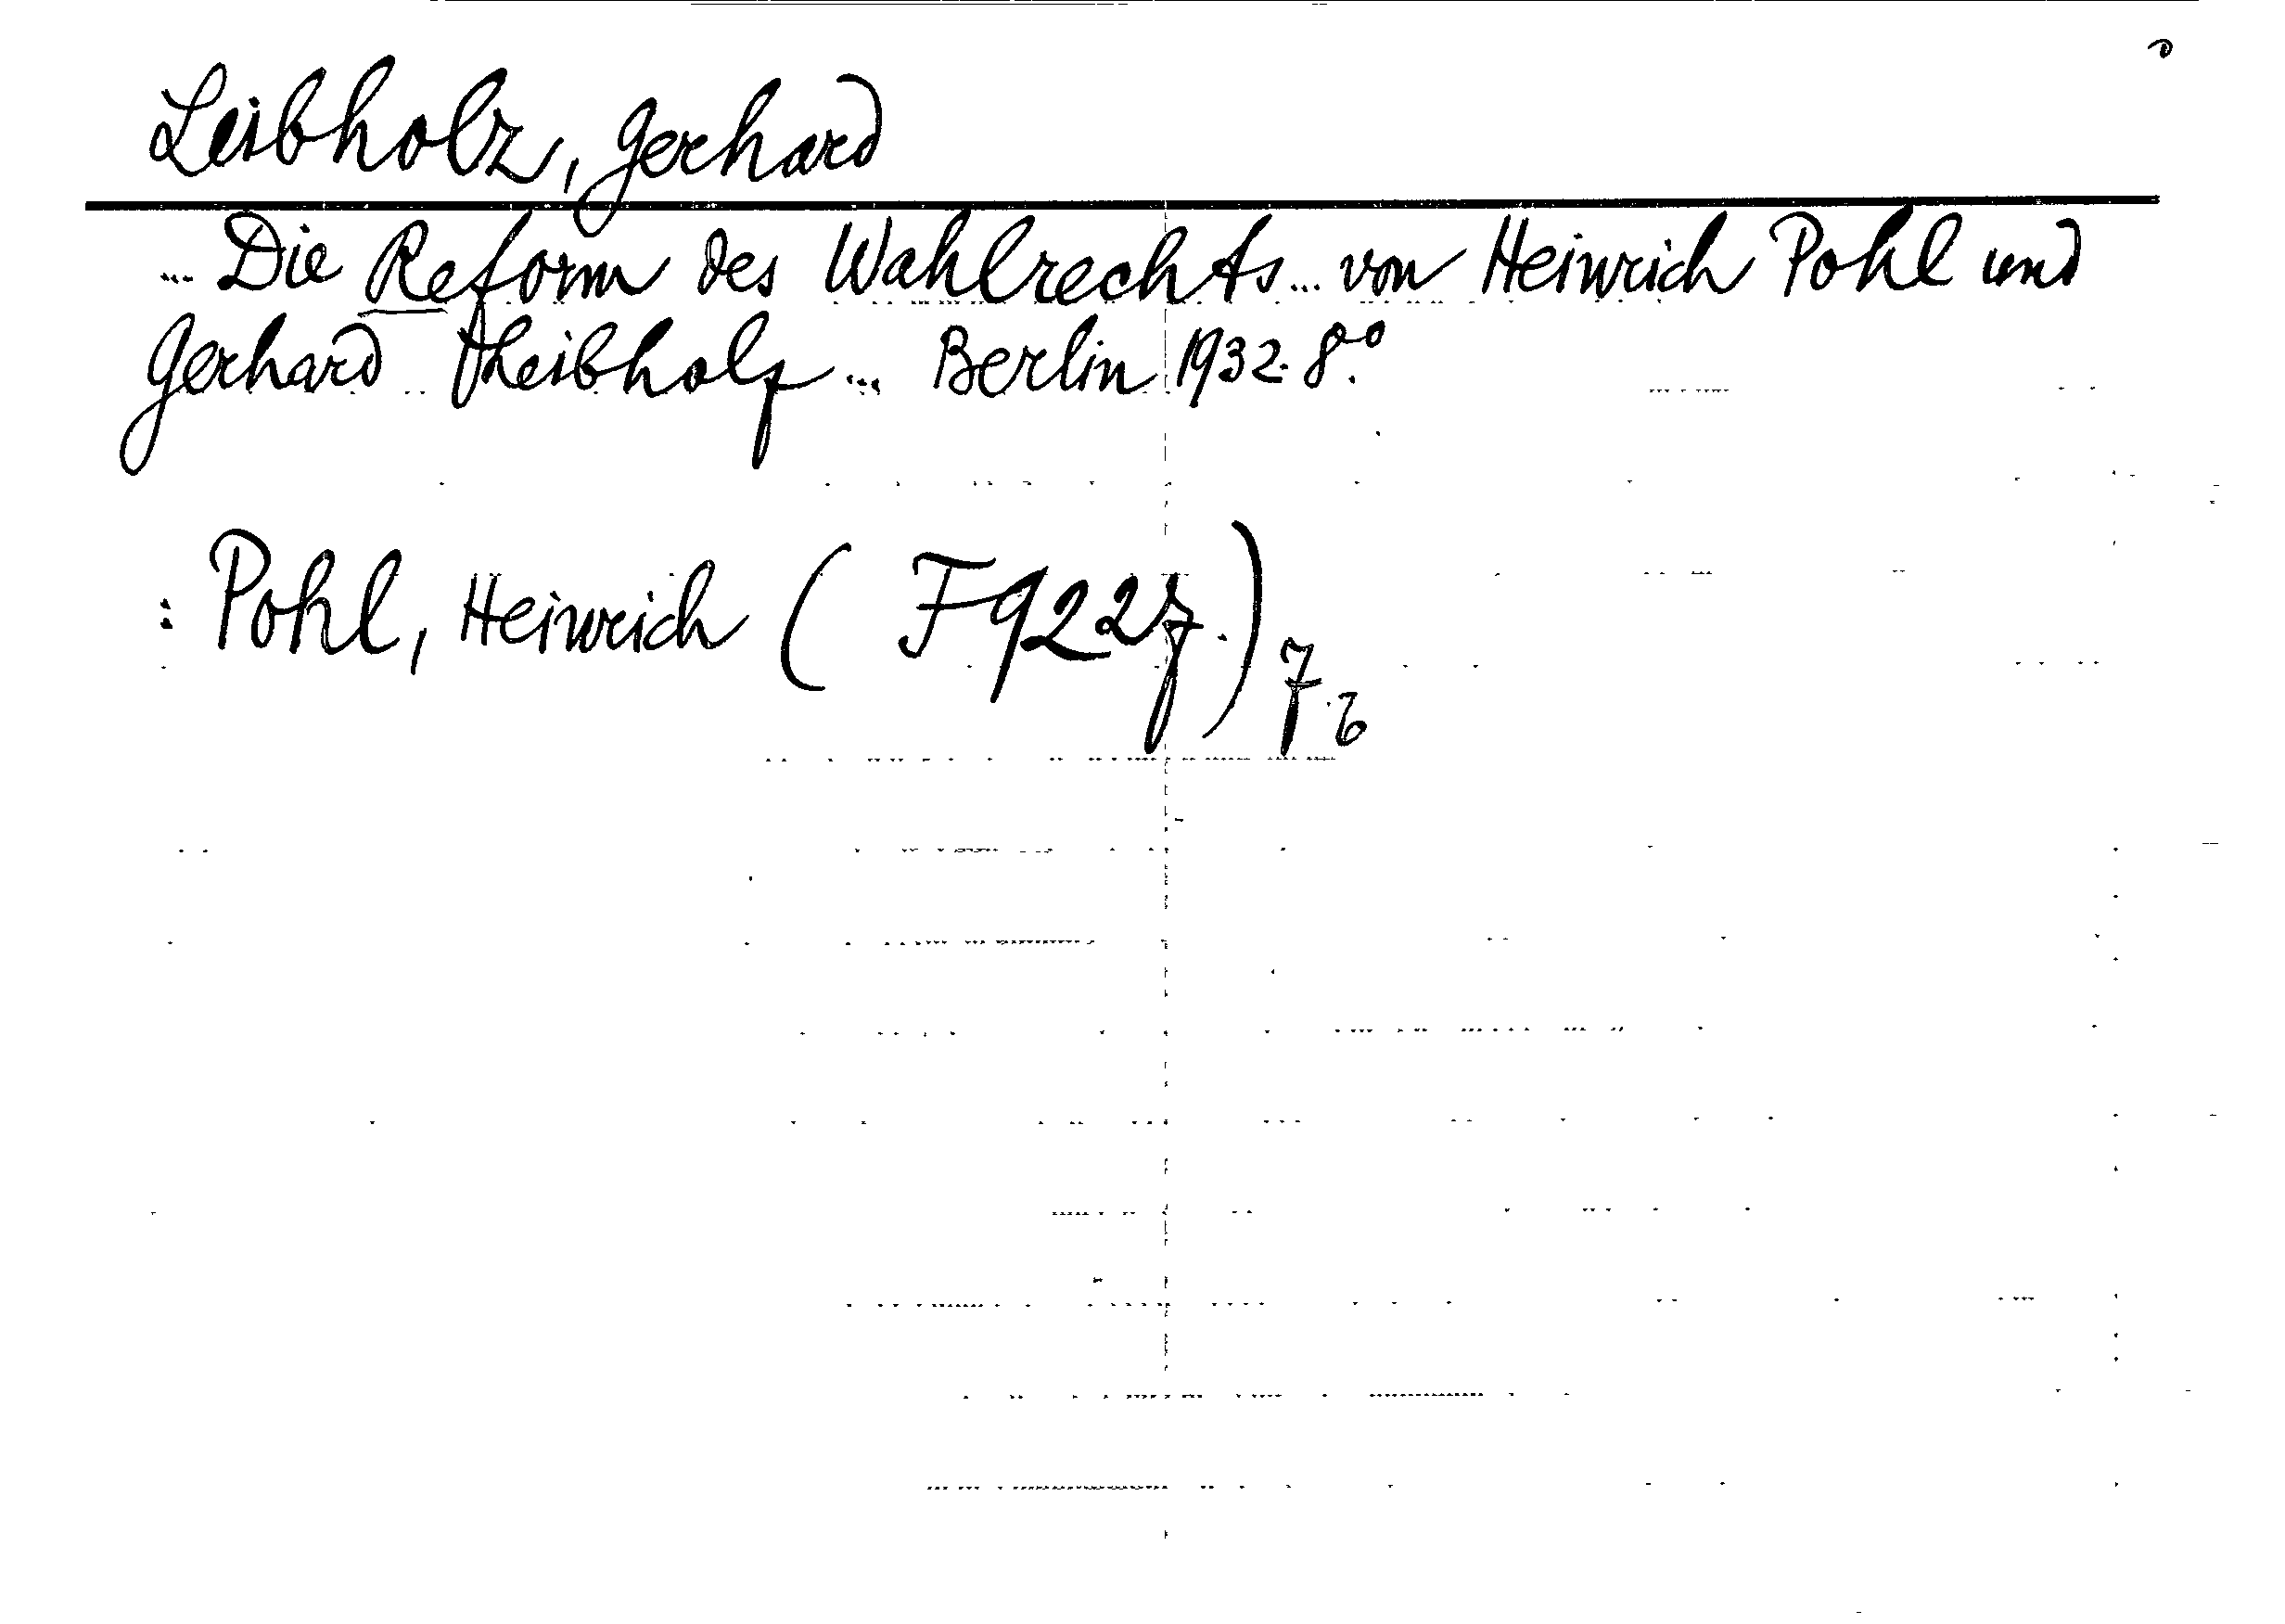 Leibholz, Gerhard
... Die Reform des Wahlrechts ... von Heinrich Pohl und
Gerhard Leibholz ... Berlin 1932. 8°.
: Pohl, Heinrich ( F 9227.) 7.6